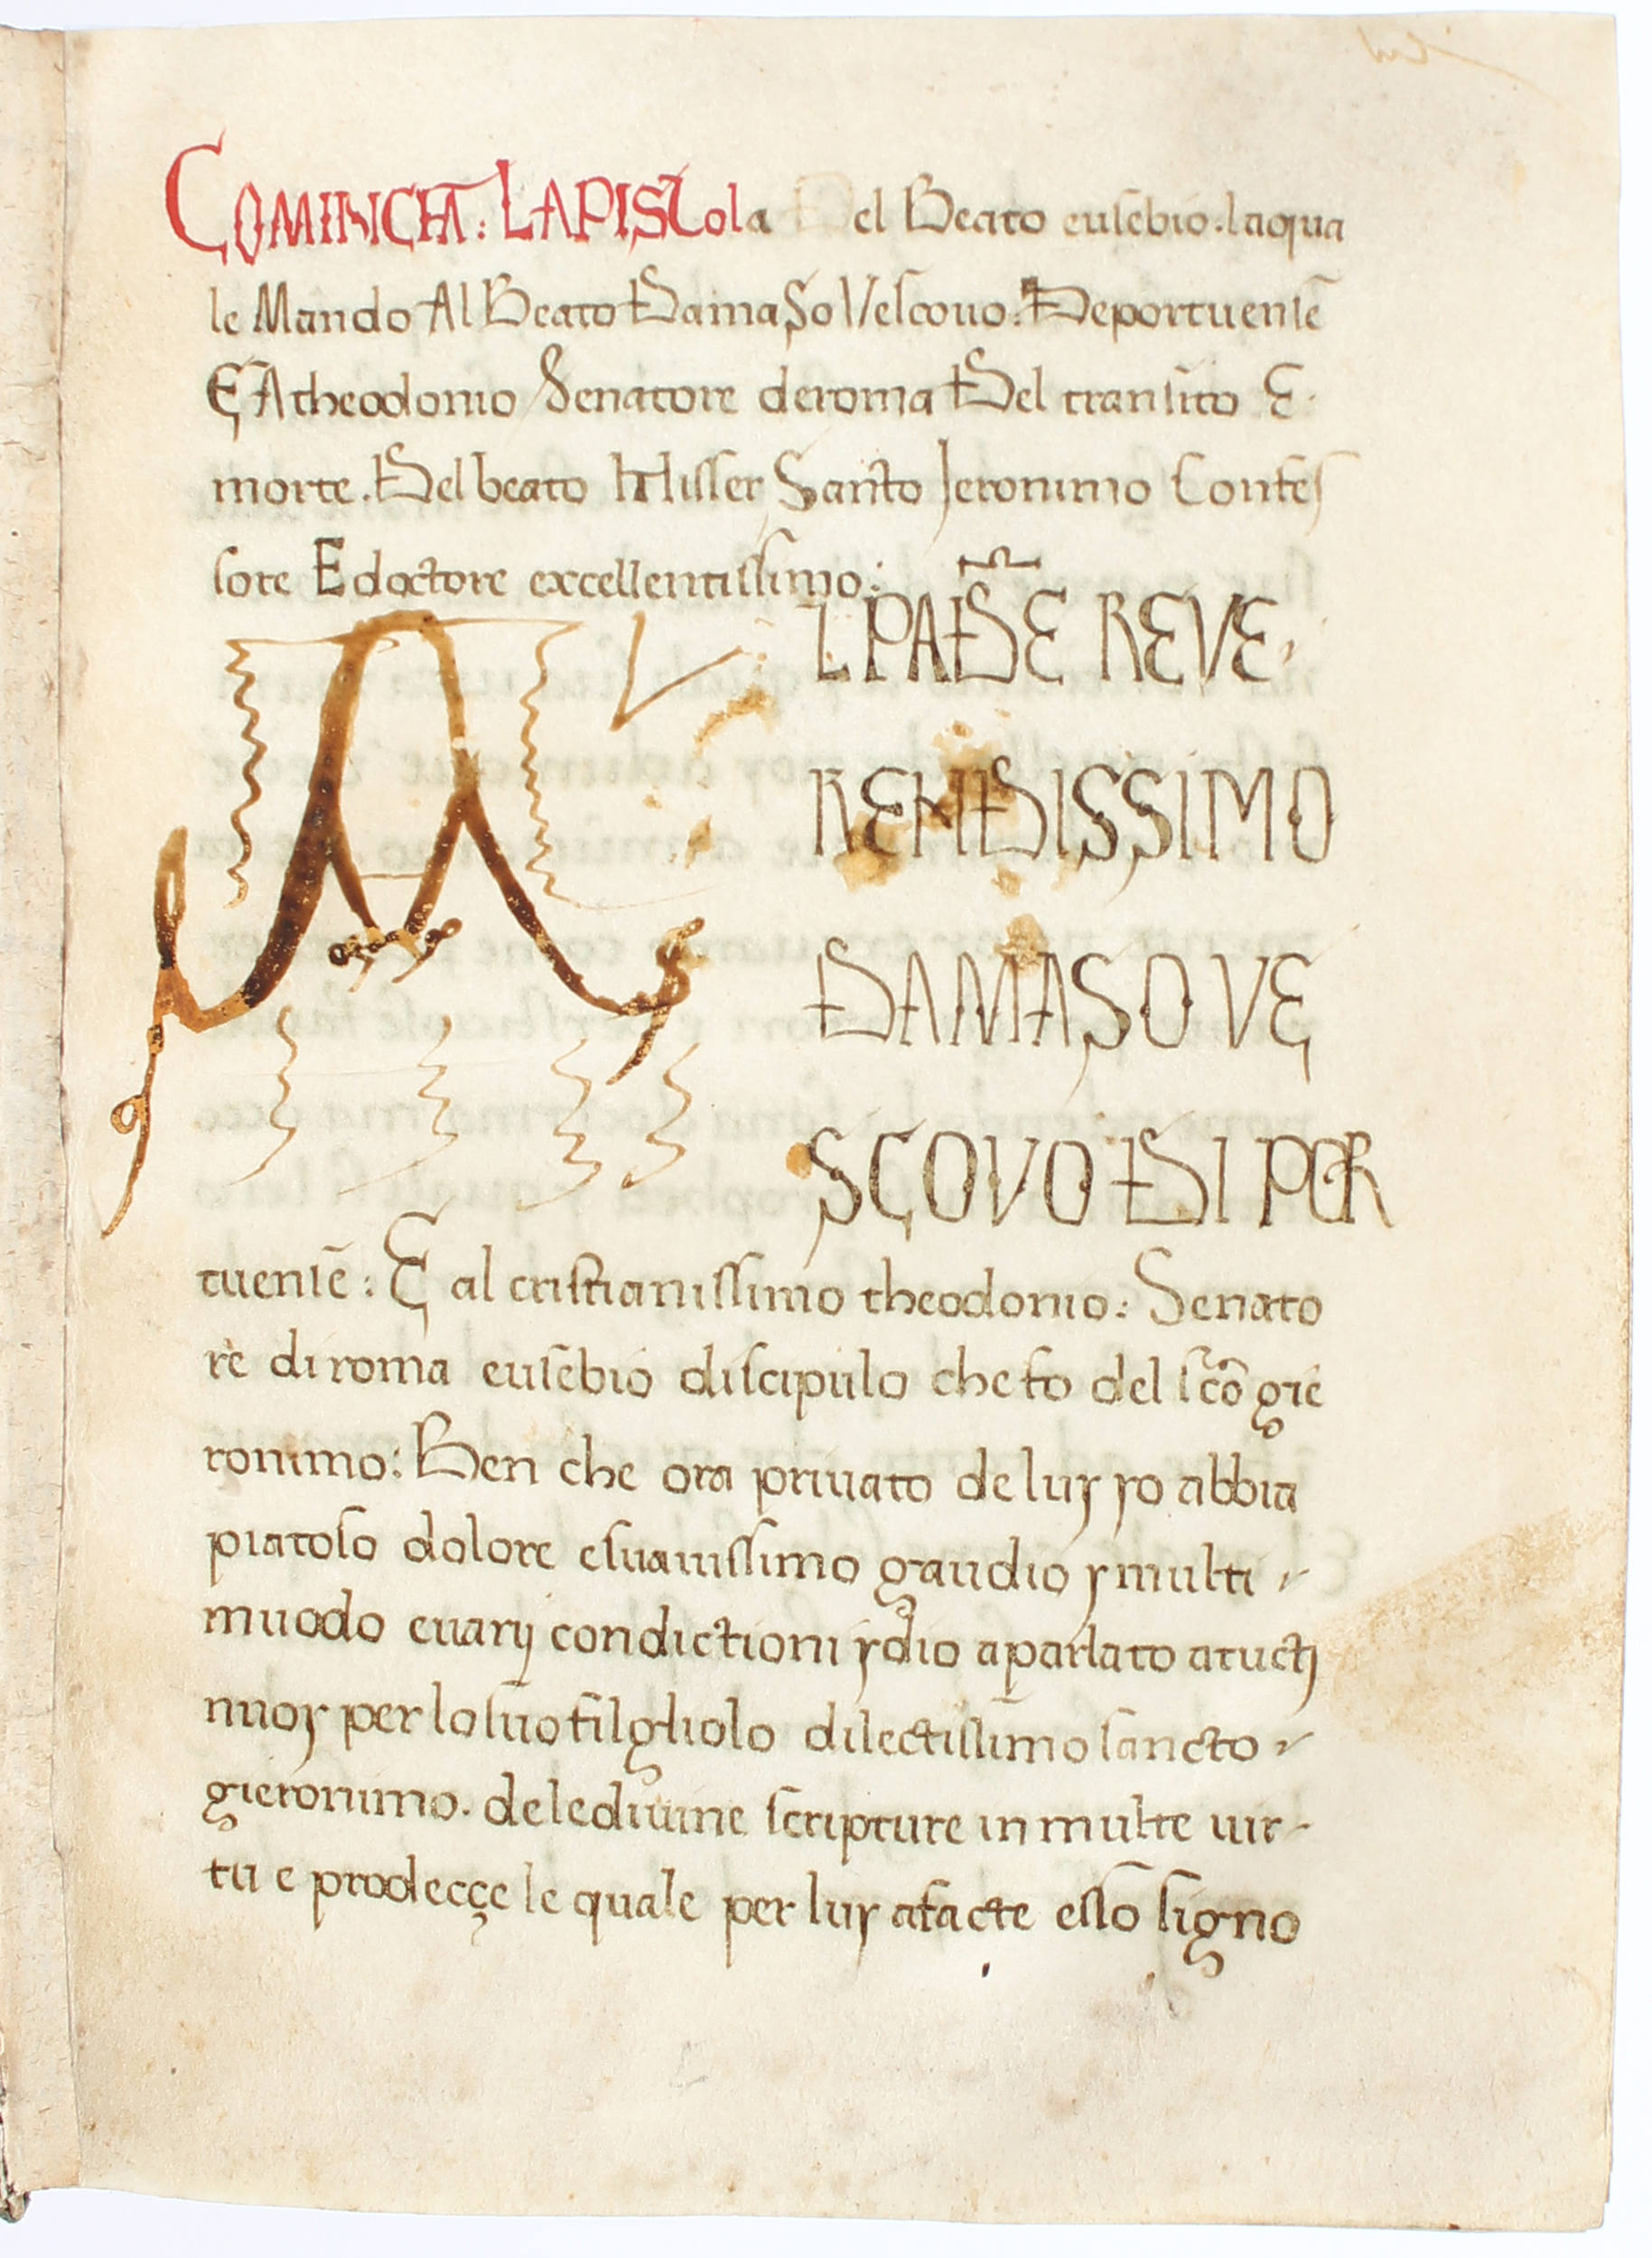 COMINCIA: LAPISTola Del Beato eusebio. laqua
le Mando Al Beato Damaso Vescouo: Deportuense
E A theodonio Senatore deroma Del transito E
morte. Del beato Misser Santo Jeronimo Confes
sore E doctore excellentissimo:
A L PADE REVE
RENDISSIMO
DAMASO VE
SCOVO DI POR
tuensē: E al cristianissimo theodonio: Senato
re di roma eusebio discipulo che fo del sco gie
ronimo: Ben che ora priuato de luy yo abbia
piatoso dolore esuauissimo gaudio y multi
muodo euarij condictioni ydio aparlato atuctj
nuoy per lo suo filgliolo dilectissimo sancto
gieronimo. deledivine scripture in multe uir-
tu e prodecçe le quale per luy afacte esso signo